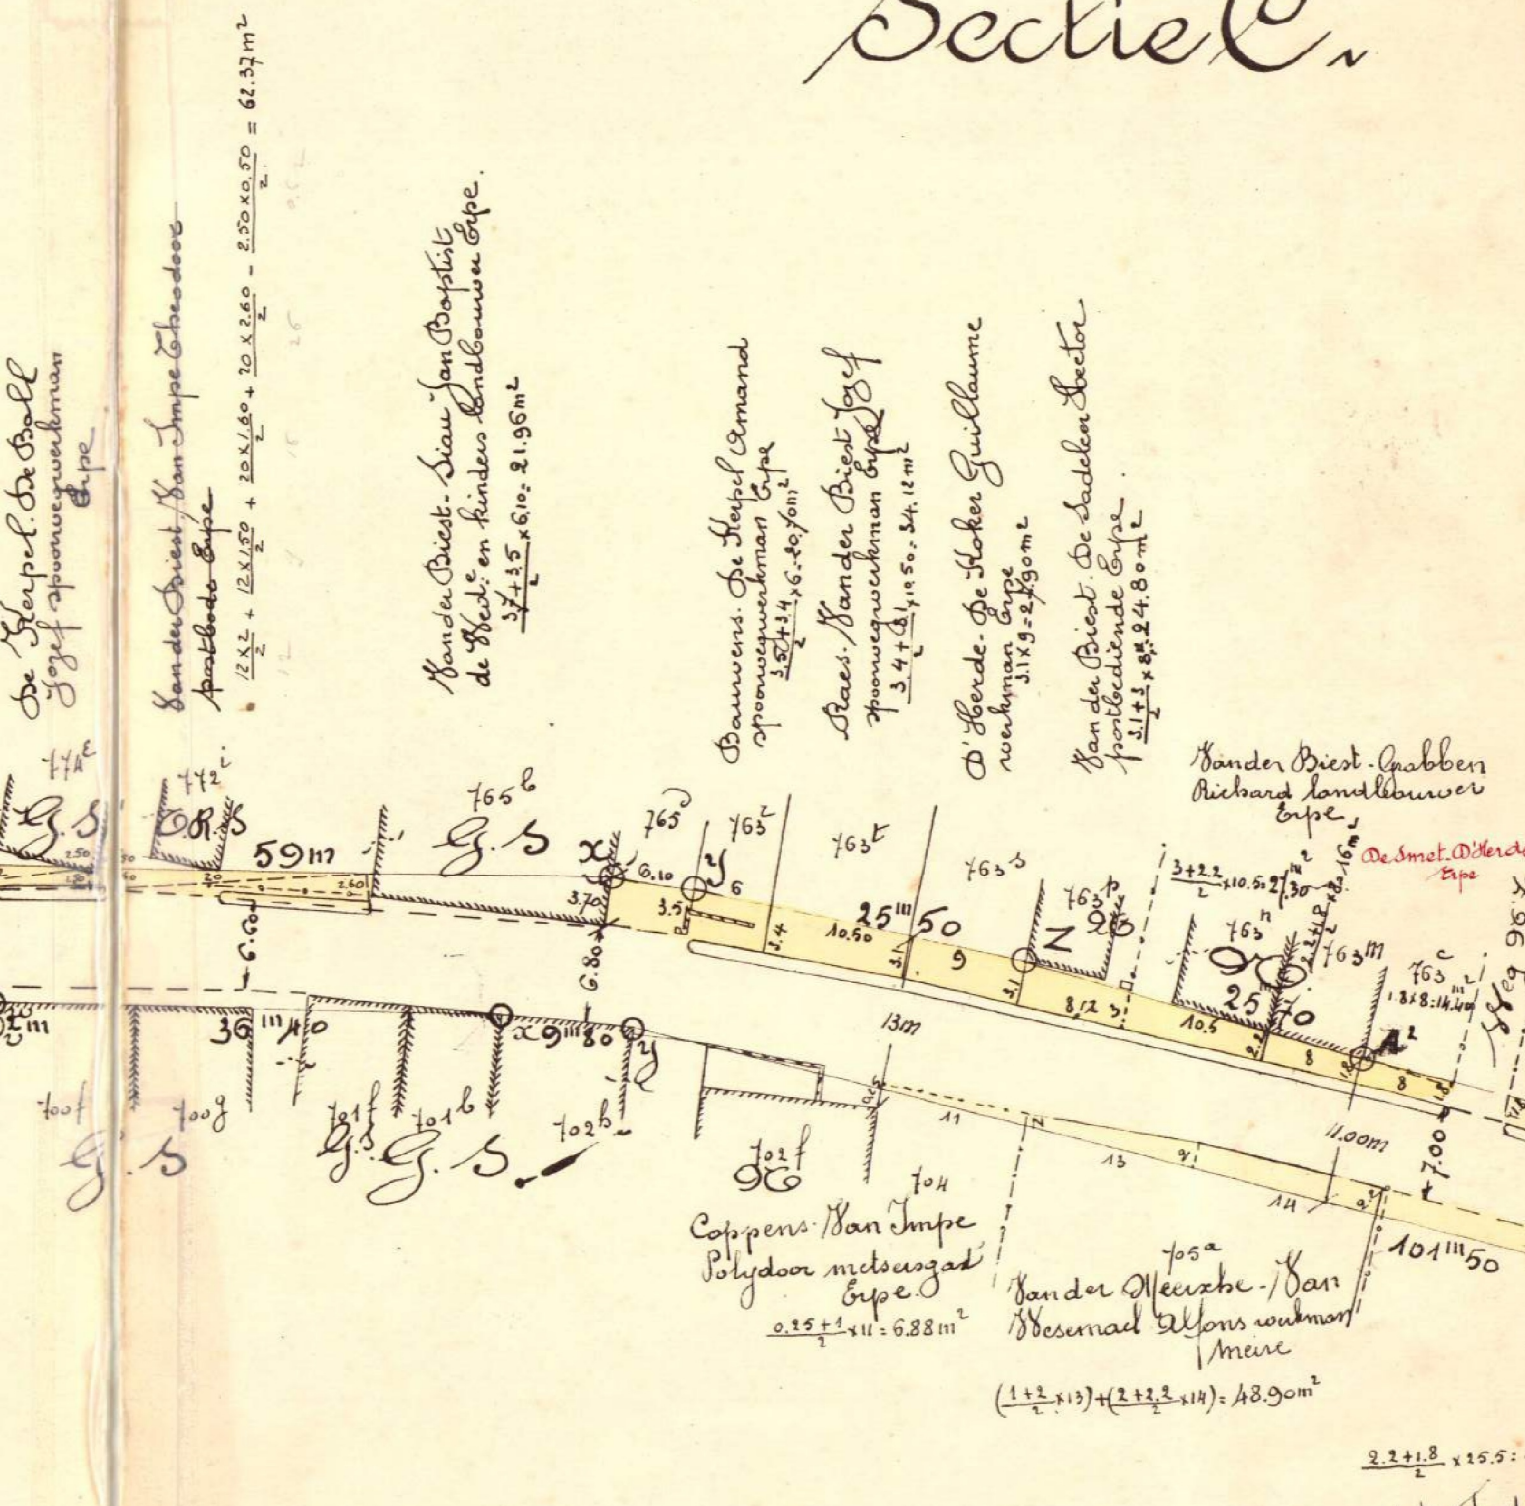 Sectie C.
De Kerpel. De Boll
Jozef spoorwegwerkman
Erpe
Van der Biest Van Impe Theodoor
postbode Erpe
12x2/2 + 12x1,50/2 + 20x1.60/2 + 20x2.60/2 - 2.50x0.50/2 = 62.37m²
Van der Biest- Siau Jan Baptist
de Wed.e en kinders landbouwer Erpe.
3,7+3,5/2 x6,10= 21.96m²
Bauwens. De Kerpel Amand
spoorwegwerkman Erpe
3,5+3,4/2 x6=20,70m²
Raes. Van der Biest Jozef
spoorwegwerkman Erpe
3.4+3,1/2 x10.50= 34.12m²
D'Herde- De Koker Guillaume
werkman Erpe
3.1x9=27,90m²
Van der Biest. De Sadeleer Hector
postbediende Erpe.
3.1+3/2 x8= 24.80m²
Vander Biest-Grabben
Richard landbouwer
Erpe
De Smet-D'Herde
Erpe
3+2.2/2 x10.5=27.30m²
1.8x8=14.40m²
774E
G.S
772i
E.R.S
59m
765b
G.S
x
765
y
763
763t
763s
763p
N
763n
763m
763c
6.10
6
3.70
3.5
3.4
10.50
25m50
3.1
9
3.1
8,12
3
10.5
25
70
2.2
8
1.8
A²
8
1.8
2.60
6.60
6.80
+7.00
Weg
13m
11.00m
36m40
x 9m80
y
700f
700g
G.S
701f
G.S.
701b
G.S
702h
702f
704
11
13
2
14
101m50
705a
Coppens-Van Impe
Polydoor metsersgast
Erpe.
0.25+1/2 x11=6.88m²
Van der Meerxhe-/Van
Wesemael Alfons werkman
Meire
(1+2/2 x13)+(2+2.2/2 x14)=48.90m²
2.2+1.8/2 x25.5=